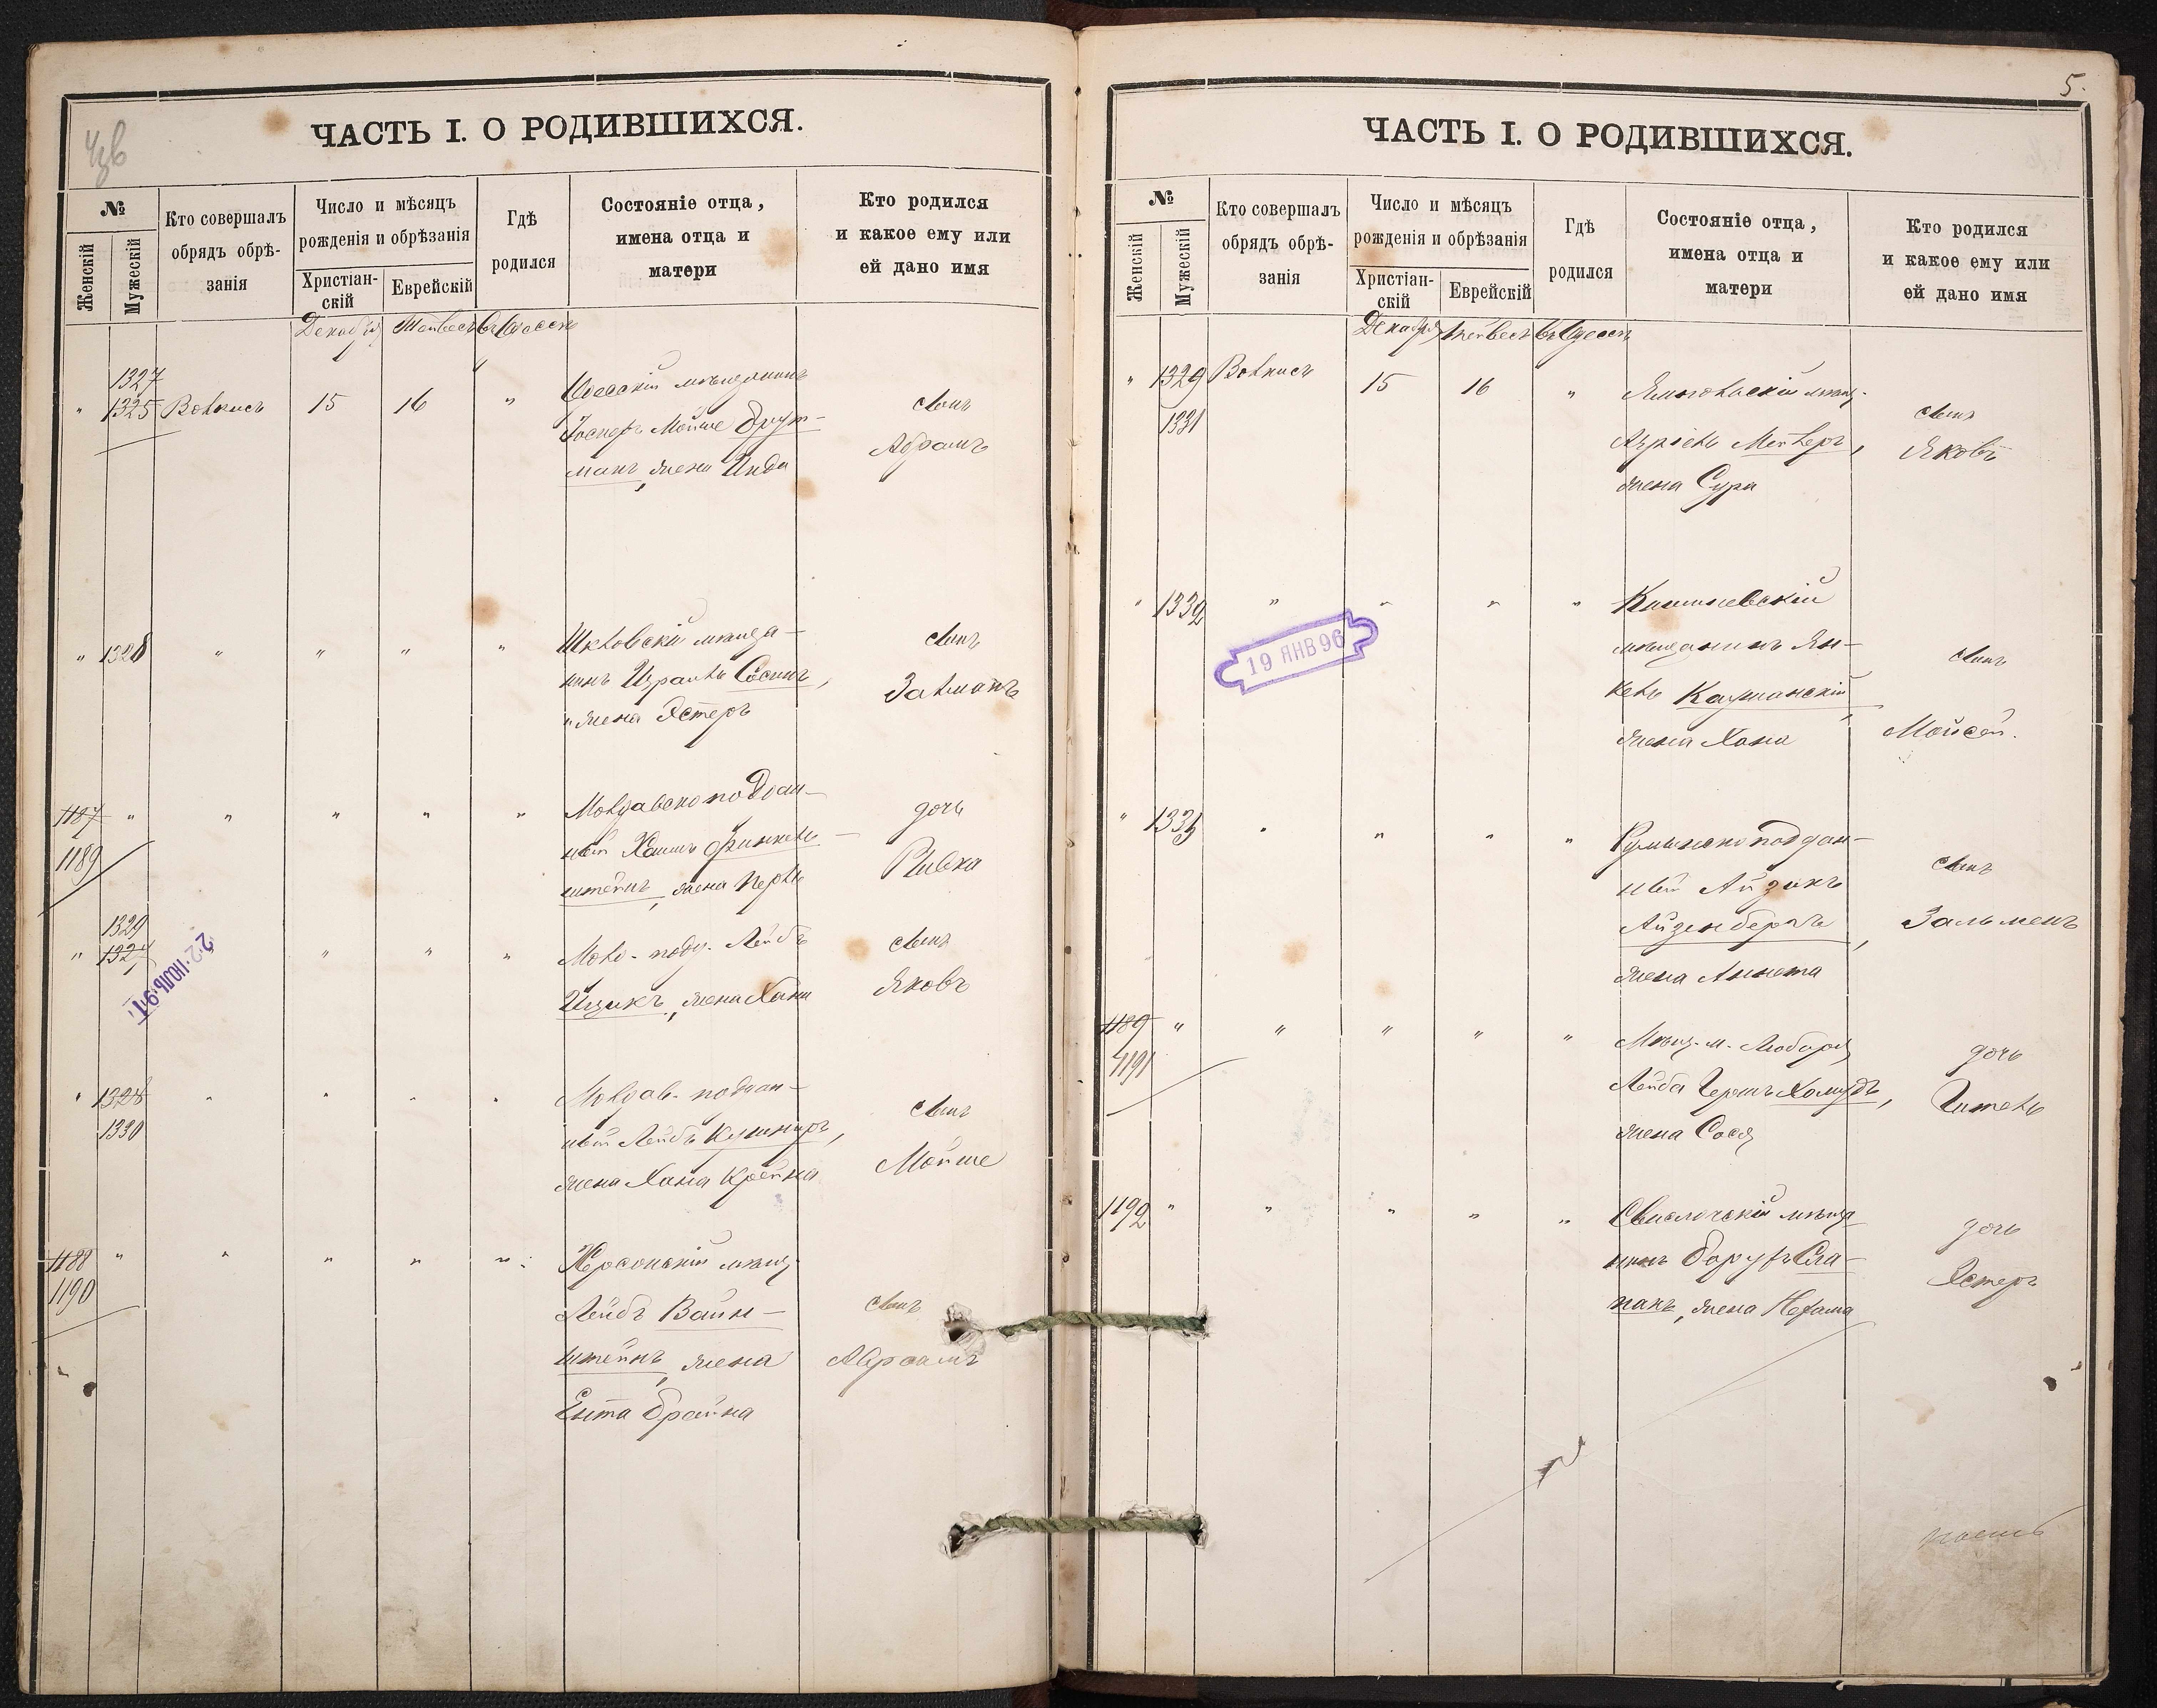 ЧАСТЬ I. О РОДИВШИХСЯ.
№
Женскій
Мужескій
Кто совершалъ
обрядъ обрѣ-
занія
Число и мѣсяцъ
рожденія и обрѣзанія
Христіан-
скій
Еврейскій
Гдѣ
родился
Состояніе отца,
имена отца и
матери
Кто родился
и какое ему или
ей дано имя
Декабря Тейвесъ въ Одессѣ
1327
" 1325 Волкисъ 15 16 "
Одесскій мѣщанинъ
Іосифъ Мойше Друк-
манъ, жена Инда
сынъ
Абрамъ
" 1328 " " " "
Шкловскій мѣща-
нинъ Израиль Сосинъ,
жена Эстеръ
сынъ
Залманъ
1187 " " " " "
1189
Молдавскоподдан-
ный Хаимъ Финкель-
штейнъ, жена Перль
дочь
Ривка
1329
" 1327 " " "
22 ІЮЛЬ 91
Молд. подд. Лейбъ
Ицикъ, жена Хана
сынъ
Яковъ
" 1328 " " " "
1330
Молдав. поддан-
ный Лейбъ Кушниръ,
жена Хана Крейна
сынъ
Мойше
1188 " " " " "
1190
Херсонскій мѣщ.
Лейбъ Вайн-
штейнъ, жена
Ента Брайна
сынъ
Абрамъ
5.
ЧАСТЬ I. О РОДИВШИХСЯ.
№
Женскій
Мужескій
Кто совершалъ
обрядъ обрѣ-
занія
Число и мѣсяцъ
рожденія и обрѣзанія
Христіан-
скій
Еврейскій
Гдѣ
родился
Состояніе отца,
имена отца и
матери
Кто родился
и какое ему или
ей дано имя
Декабря Тейвесъ въ Одессѣ
" 1329 Волкисъ 15 16 "
1331
мѣщ.
Азріель Меклеръ,
жена Сура
сынъ
Яковъ
" 1332 " " " "
19 ЯНВ 96
Кишиневскій
мѣщанинъ Ян-
кель Каушанскій
жена Хана
сынъ
Мойсей.
" 1333 " " " "
Румынскоподдан-
ный Айзикъ
Айзенбергъ,
жена Аннета
сынъ
Зальменъ
1189 " " " " "
1191
Мѣщ. м. Любаря
Лейба Гершъ Хамудъ,
жена Сося
дочь
Гитель
1192 " " " " "
Свислочскій мѣща
нинъ Борухъ Сла-
пакъ, жена Нехама
дочь
Эстеръ